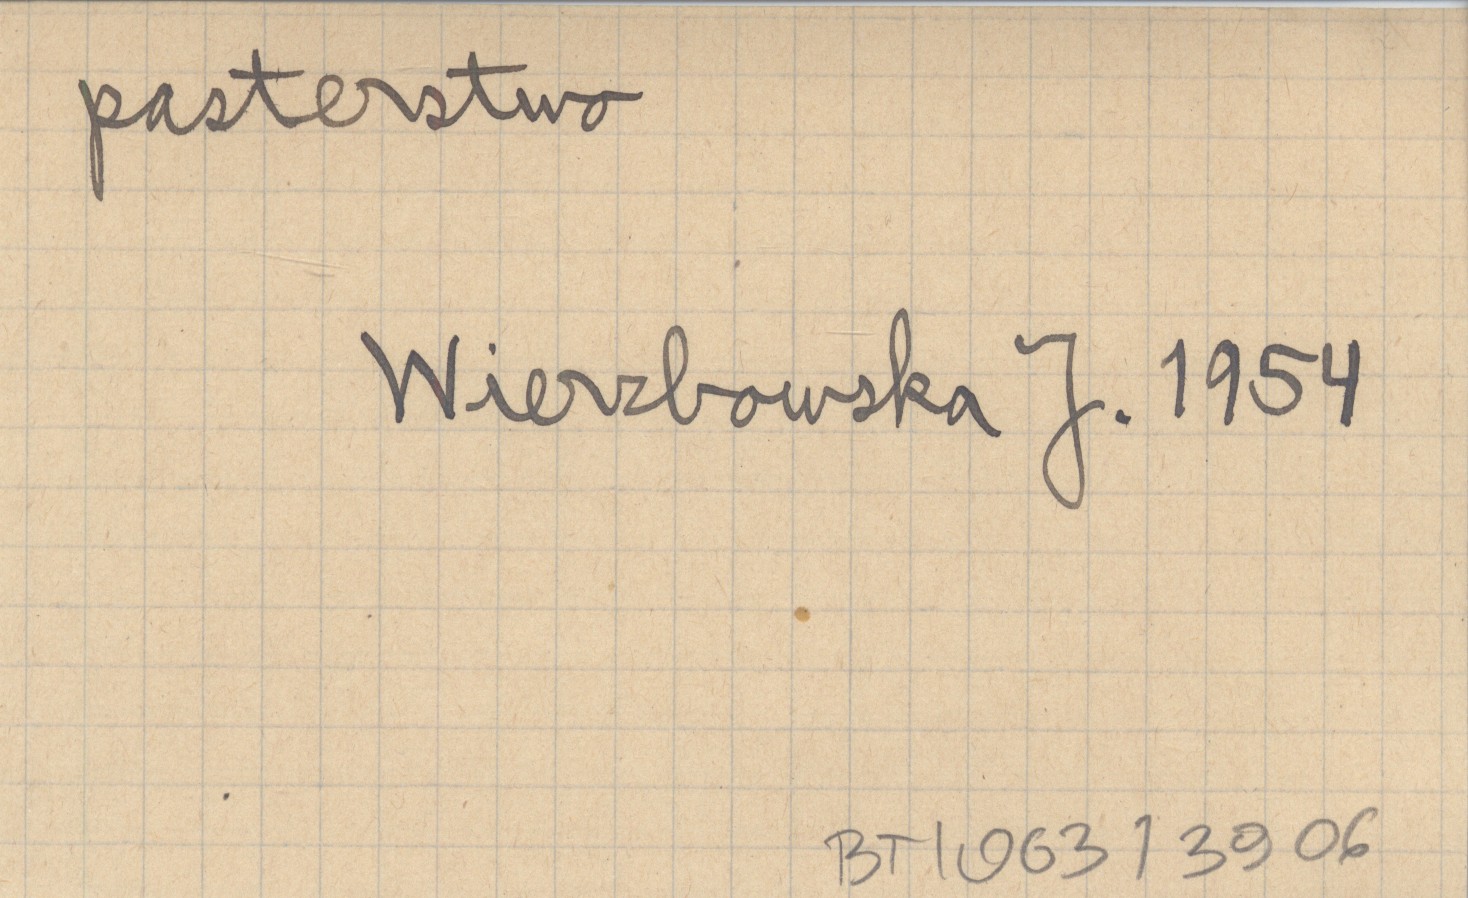 pasterstwo
Wierzbowska J. 1954
BT/063/3906